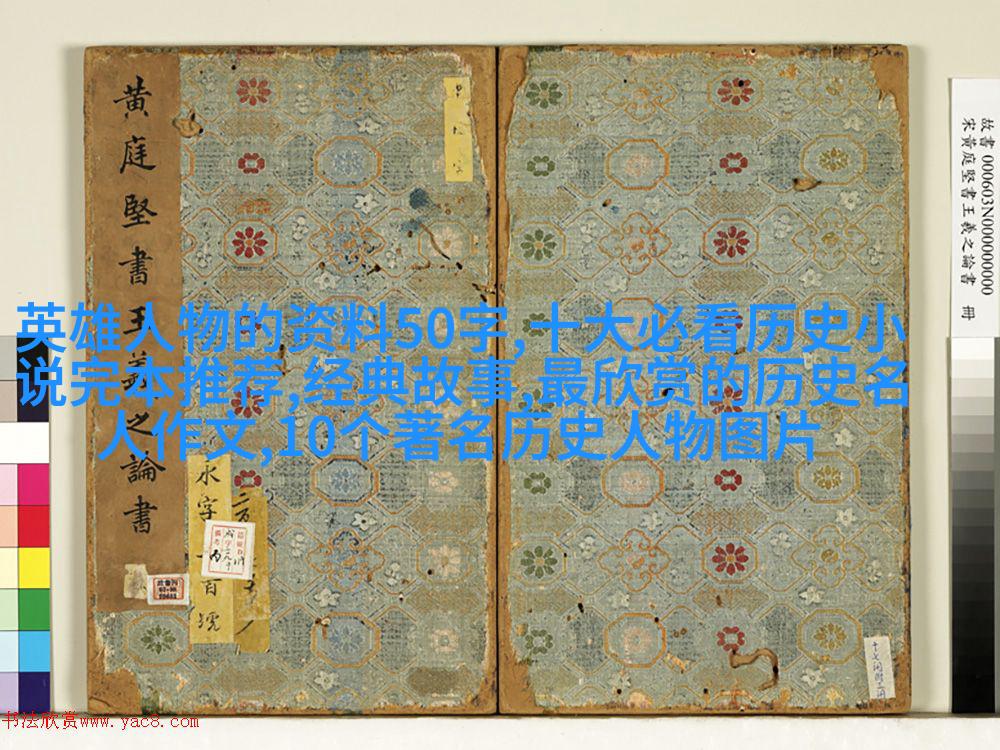 英雄人物的资料50字,十大必看历史小
说完本推荐,经典故事,最欣赏的历史名
人作文,10个著名历史人物图片
黄庭堅書王羲之論書
故書 000603N000000000
宋黄庭堅書王羲之論書 冊
永字
百號
书法欣赏www.yac8.com